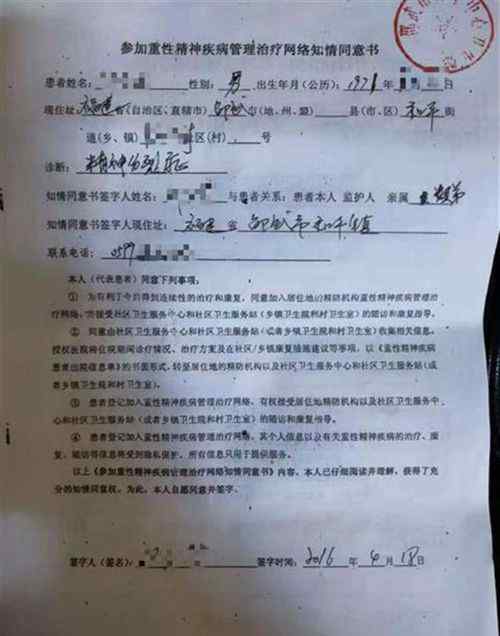 参加重性精神疾病管理治疗网络知情同意书
患者姓名: 性别: 男 出生年月(公历): 1971 年 月 日
现住址 福建 省(自治区、直辖市) 邵武 市(地、州、盟) 县(市、区) 和平 街
道(乡、镇) 社区(村) 号
诊断: 精神分裂症
知情同意书签字人姓名: 与患者关系: 患者本人 监护人 亲属
知情同意书签字人现住址: 福建 省 邵武市和平镇
联系电话: 0599
本人(代表患者)同意下列事项:
① 为有利于今后得到连续性的治疗和康复,同意加入居住地的精防机构重性精神疾病管理治
疗网络,并接受社区卫生服务中心和社区卫生服务站(乡镇卫生院和村卫生室)的随访和康复指导。
② 同意由社区卫生服务中心和社区卫生服务站(或者乡镇卫生院和村卫生室)收集相关信息,
授权医院将住院期间诊疗情况、治疗方案及在社区/乡镇康复措施建议等事项,以《重性精神疾病
患者出院信息单》的书面形式,转至居住地的精防机构以及社区卫生服务中心和社区卫生服务站(或
者乡镇卫生院和村卫生室)。
③ 患者登记加入重性精神疾病管理治疗网络,有权接受居住地精防机构以及社区卫生服务中
心和社区卫生服务站(或者乡镇卫生院和村卫生室)的随访和康复指导。
④ 患者登记加入重性精神疾病管理治疗网络,其个人信息以及有关重性精神疾病的治疗、康
复、随访等信息将受到隐私保护。所有信息只用于提供服务。
以上《参加重性精神疾病管理治疗网络知情同意书》内容,本人已仔细阅读并理解,获得了充
分的知情同意权。为此,本人自愿同意并签字。
签字人(签名): 签字时间: 2016 年 4 月 18 日